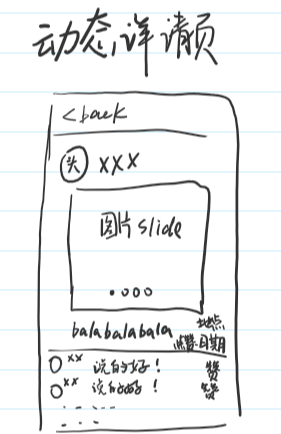 动态详请页
<back
头 XXX
图片slide
balabalabala 地点
点赞 日期
XX 说的好! 赞
XX 说的好! 赞